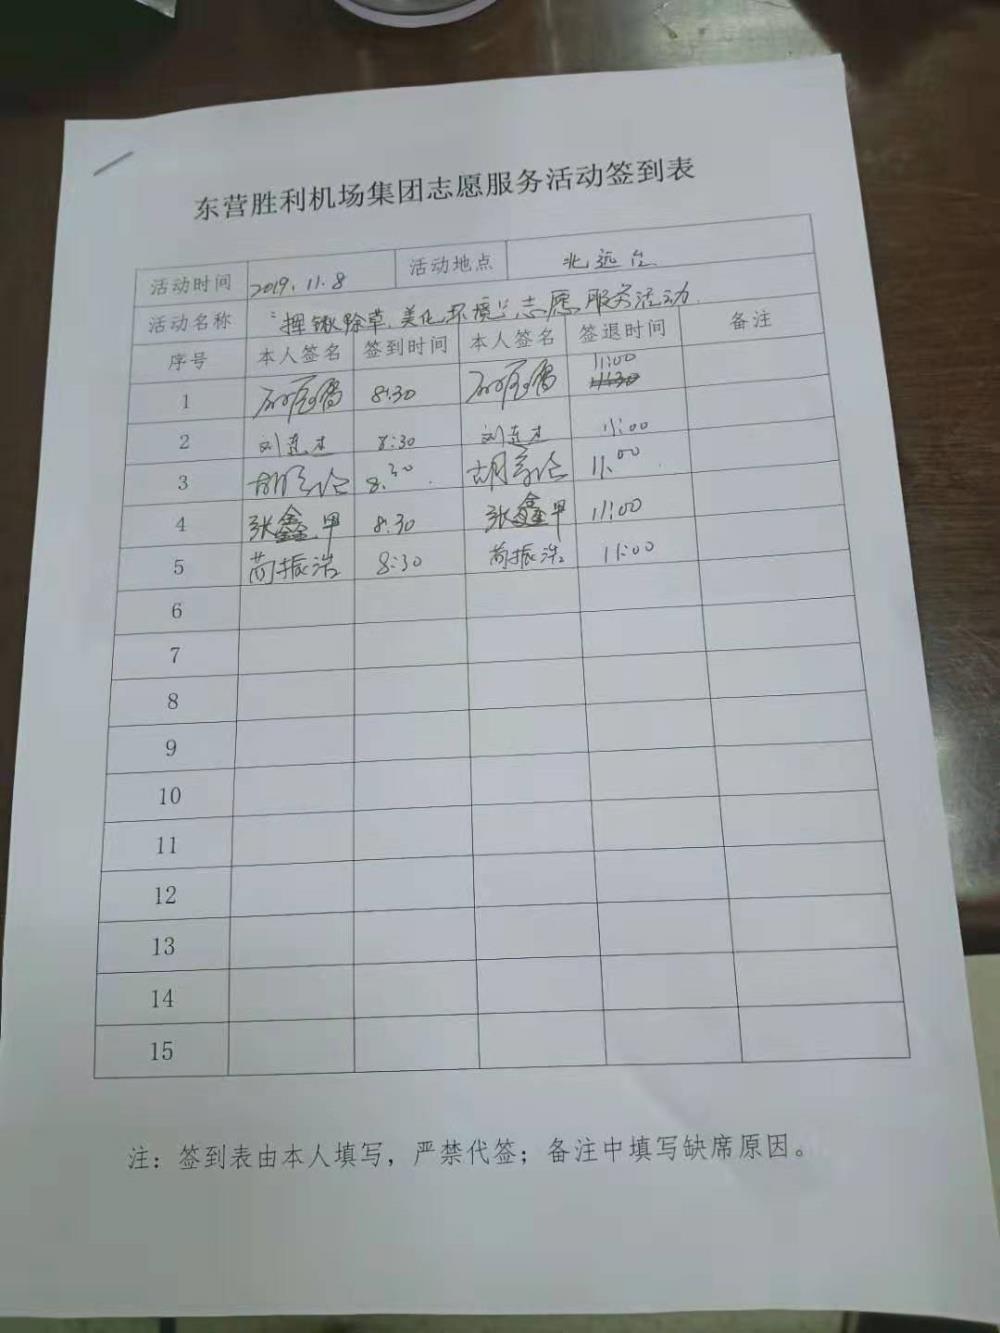 东营胜利机场集团志愿服务活动签到表
活动时间 2019.11.8 活动地点 北远位
活动名称 "挥锹除草,美化环境"志愿服务活动
序号 本人签名 签到时间 本人签名 签退时间 备注
1 8:30 11:00
2 刘连杰 8:30 刘连杰 11:00
3 8:30 11:00
4 张鑫甲 8:30 张鑫甲 11:00
5 苘振浩 8:30 苘振浩 11:00
6
7
8
9
10
11
12
13
14
15
注：签到表由本人填写，严禁代签；备注中填写缺席原因。